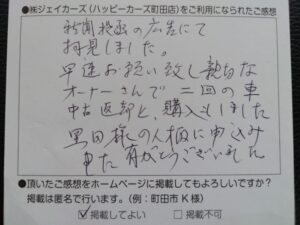 ●㈱ジェイカーズ（ハッピーカーズ町田店）をご利用になられたご感想
新聞掲画の広告にて
拝見しました。
早速お願い致し親切な
オーナーさんで 二回の車
中古返却と、購入もしました
黒田様の人柄に申込み
申た 有がとうございました
●頂いたご感想をホームページに掲載してもよろしいですか？
掲載は匿名で行います。（例：町田市K様）
☑掲載してよい □掲載不可